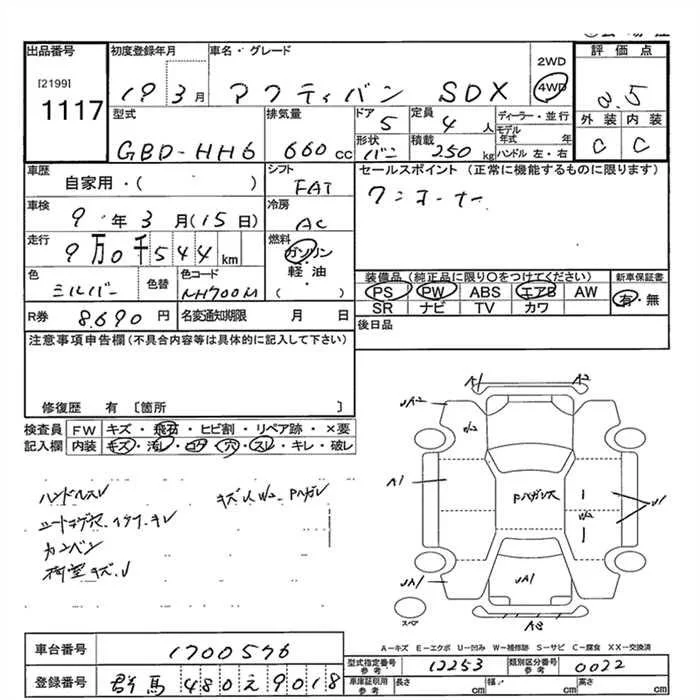 出品番号 初度登録年月 車名・グレード 2WD 評価点
[2199] 19 3月 アクティバン SDX 4WD 3.5
1117 型式 排気量 ドア 5 定員 4人 ディーラー・並行 外装 内装
GBD-HH6 660cc 形状 バン 積載 250kg モデル年式 年 C C
ハンドル 左・右
車歴 シフト セールスポイント(正常に機能するものに限ります)
自家用・( ) FAT ワンオーナー
車検 冷房
9年3月(15日) AC
走行 燃料
9万0千544km ガソリン
色 色替 色コード 軽・油 装備品(純正品に限り○をつけてください) 新車保証書
シルバー NH700M ( ) PS PW ABS エアB AW 有・無
SR ナビ TV カワ
R券 8.690円 名変通知期限 月 日 後日品
注意事項申告欄(不具合内容等は具体的に記入して下さい)
修復歴 有〔箇所 〕
検査員 FW キズ・飛石・ヒビ割・リペア跡・×要
記入欄 内装 キズ・汚レ・コゲ・穴・スレ・キレ・破レ
ハンドルスレ
カンバン
荷室キズ
A1 A2
UA2
A1
Pハガレ
U1
UA1 UA1
スペア A3
A-キズ E-エクボ U-凹み W-補修跡 S-サビ C-腐食 XX-交換済
車台番号 1700576
型式指定番号 参考 12253 類別区分番号 参考 0022
登録番号 群馬 480 え 9018
車庫証明用 参考 長さ cm 幅 cm 高さ cm